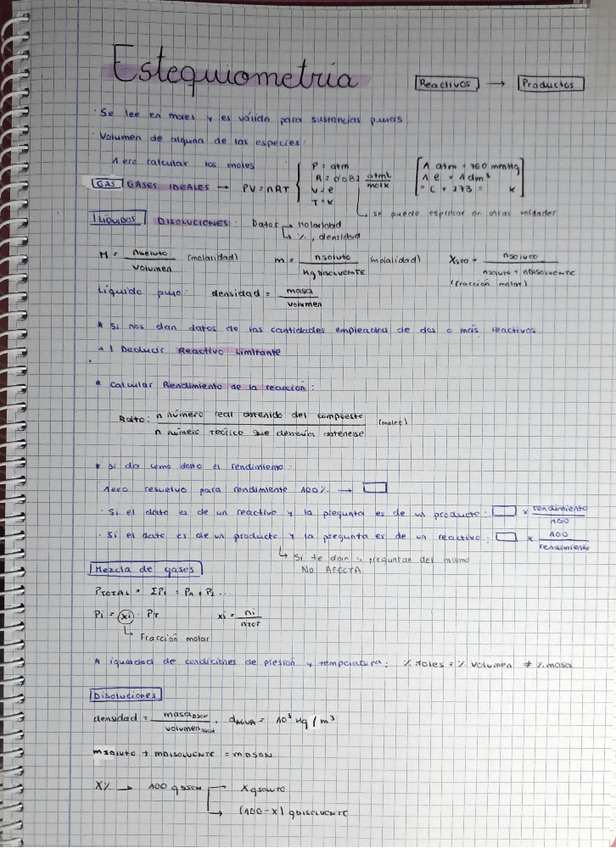 Estequiometría
Reactivos → Productos
· Se lee en moles y es válida para sustancias puras
· Volumen de alguna de las especies:
1ero calcular los moles
GAS GASES IDEALES → PV = nRT
P = atm
R = 0'082 atm·L / mol·K
V = ℓ
T = K
1 atm = 760 mmHg
1 ℓ = 1 dm³
°C + 273 = K
↳ se puede expresar en otras unidades
LÍQUIDOS DISOLUCIONES: Datos → Molaridad
↳ %, densidad
M = nsoluto / volumen (molaridad)
m = nsoluto / Kg DISOLVENTE (molalidad)
Xsto = nsoluto / nsoluto + nDISOLVENTE
(fracción molar)
Líquido puro: densidad = masa / volumen
* Si nos dan datos de las cantidades empleadas de dos o más reactivos
→ Deducir Reactivo Limitante
* Calcular Rendimiento de la reacción:
Ratio: n número real obtenido del compuesto / n número teórico que debería obtenerse (moles)
* Si da como dato el rendimiento:
1ero resuelvo para rendimiento 100% → ▭
· Si el dato es de un reactivo y la pregunta es de un producto: ▭ × rendimiento / 100
· Si el dato es de un producto y la pregunta es de un reactivo: ▭ × 100 / rendimiento
↳ Si te dan y preguntan del mismo
NO AFECTA
Mezcla de gases
PTOTAL = ΣPi = P1 + P2 ...
Pi = xi · PT
xi = ni / nTOT
↳ Fracción molar
A igualdad de condiciones de presión y temperatura: % Moles = % Volumen ≠ % masa
Disoluciones
densidad = masa DSON / volumen DSON . dAGUA = 10³ Kg / m³
mSOLUTO + mDISOLVENTE = mDSON
X% → 100 g DSON → X g SOLUTO
↳ (100 - X) g DISOLVENTE